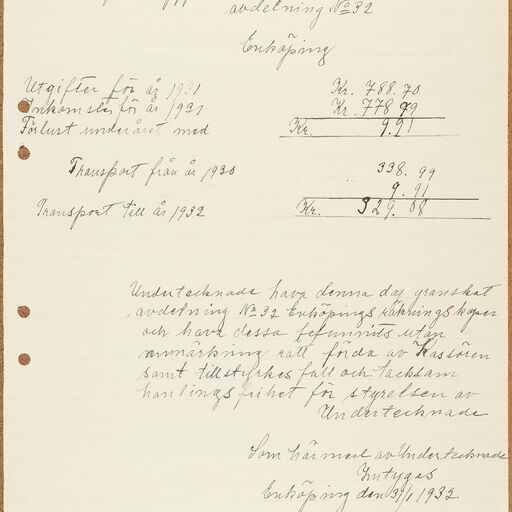 avdelning No 32
Enköping
Utgifter för år 1931 Kr. 788.70
Inkomster för år 1931 Kr. 778 79
Förlust under året med Kr. 9.91
Transport från år 1930 338.99
9.91
Transport till år 1932 Kr. 329.08
Undertecknade hava denna dag granskat
avdelning No 32 Enköpings räkningsköper
och hava dessa befunnits utan
anmärkning rätt förda av Kassören
samt tillstyrkes full och tacksam
hanlingsfrihet för styrelsen av
Undertecknade
Som härmed av Undertecknade
Intygas
Enköping den 31/1 1932